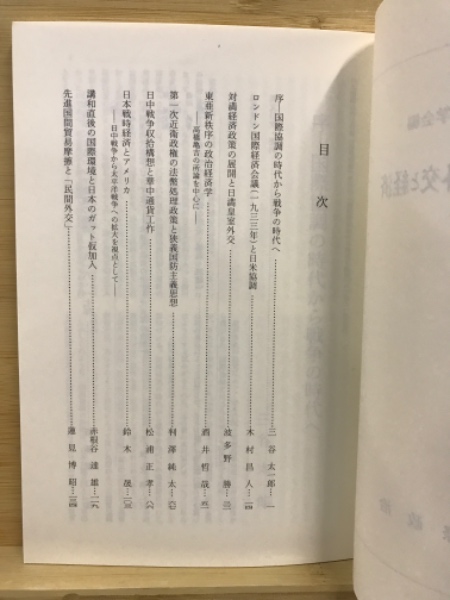 目次
序―国際協調の時代から戦争の時代へ……三谷太一郎…一
ロンドン国際経済会議(一九三三年)と日米協調……木村昌人…一四
対満経済政策の展開と日満皇室外交……波多野勝…
東亜新秩序の政治経済学……酒井哲哉…五一
――高橋亀吉の所論を中心に――
第一次近衛政権の法幣処理政策と狭義国防主義思想……利澤純太…
日中戦争収拾構想と華中通貨工作……松浦正孝…
日本戦時経済とアメリカ……鈴木晟…
――日中戦争から太平洋戦争への拡大を視点として――
講和直後の国際環境と日本のガット仮加入……赤根谷達雄…
先進国間貿易摩擦と「民間外交」……蓮見博昭…
外交と経済